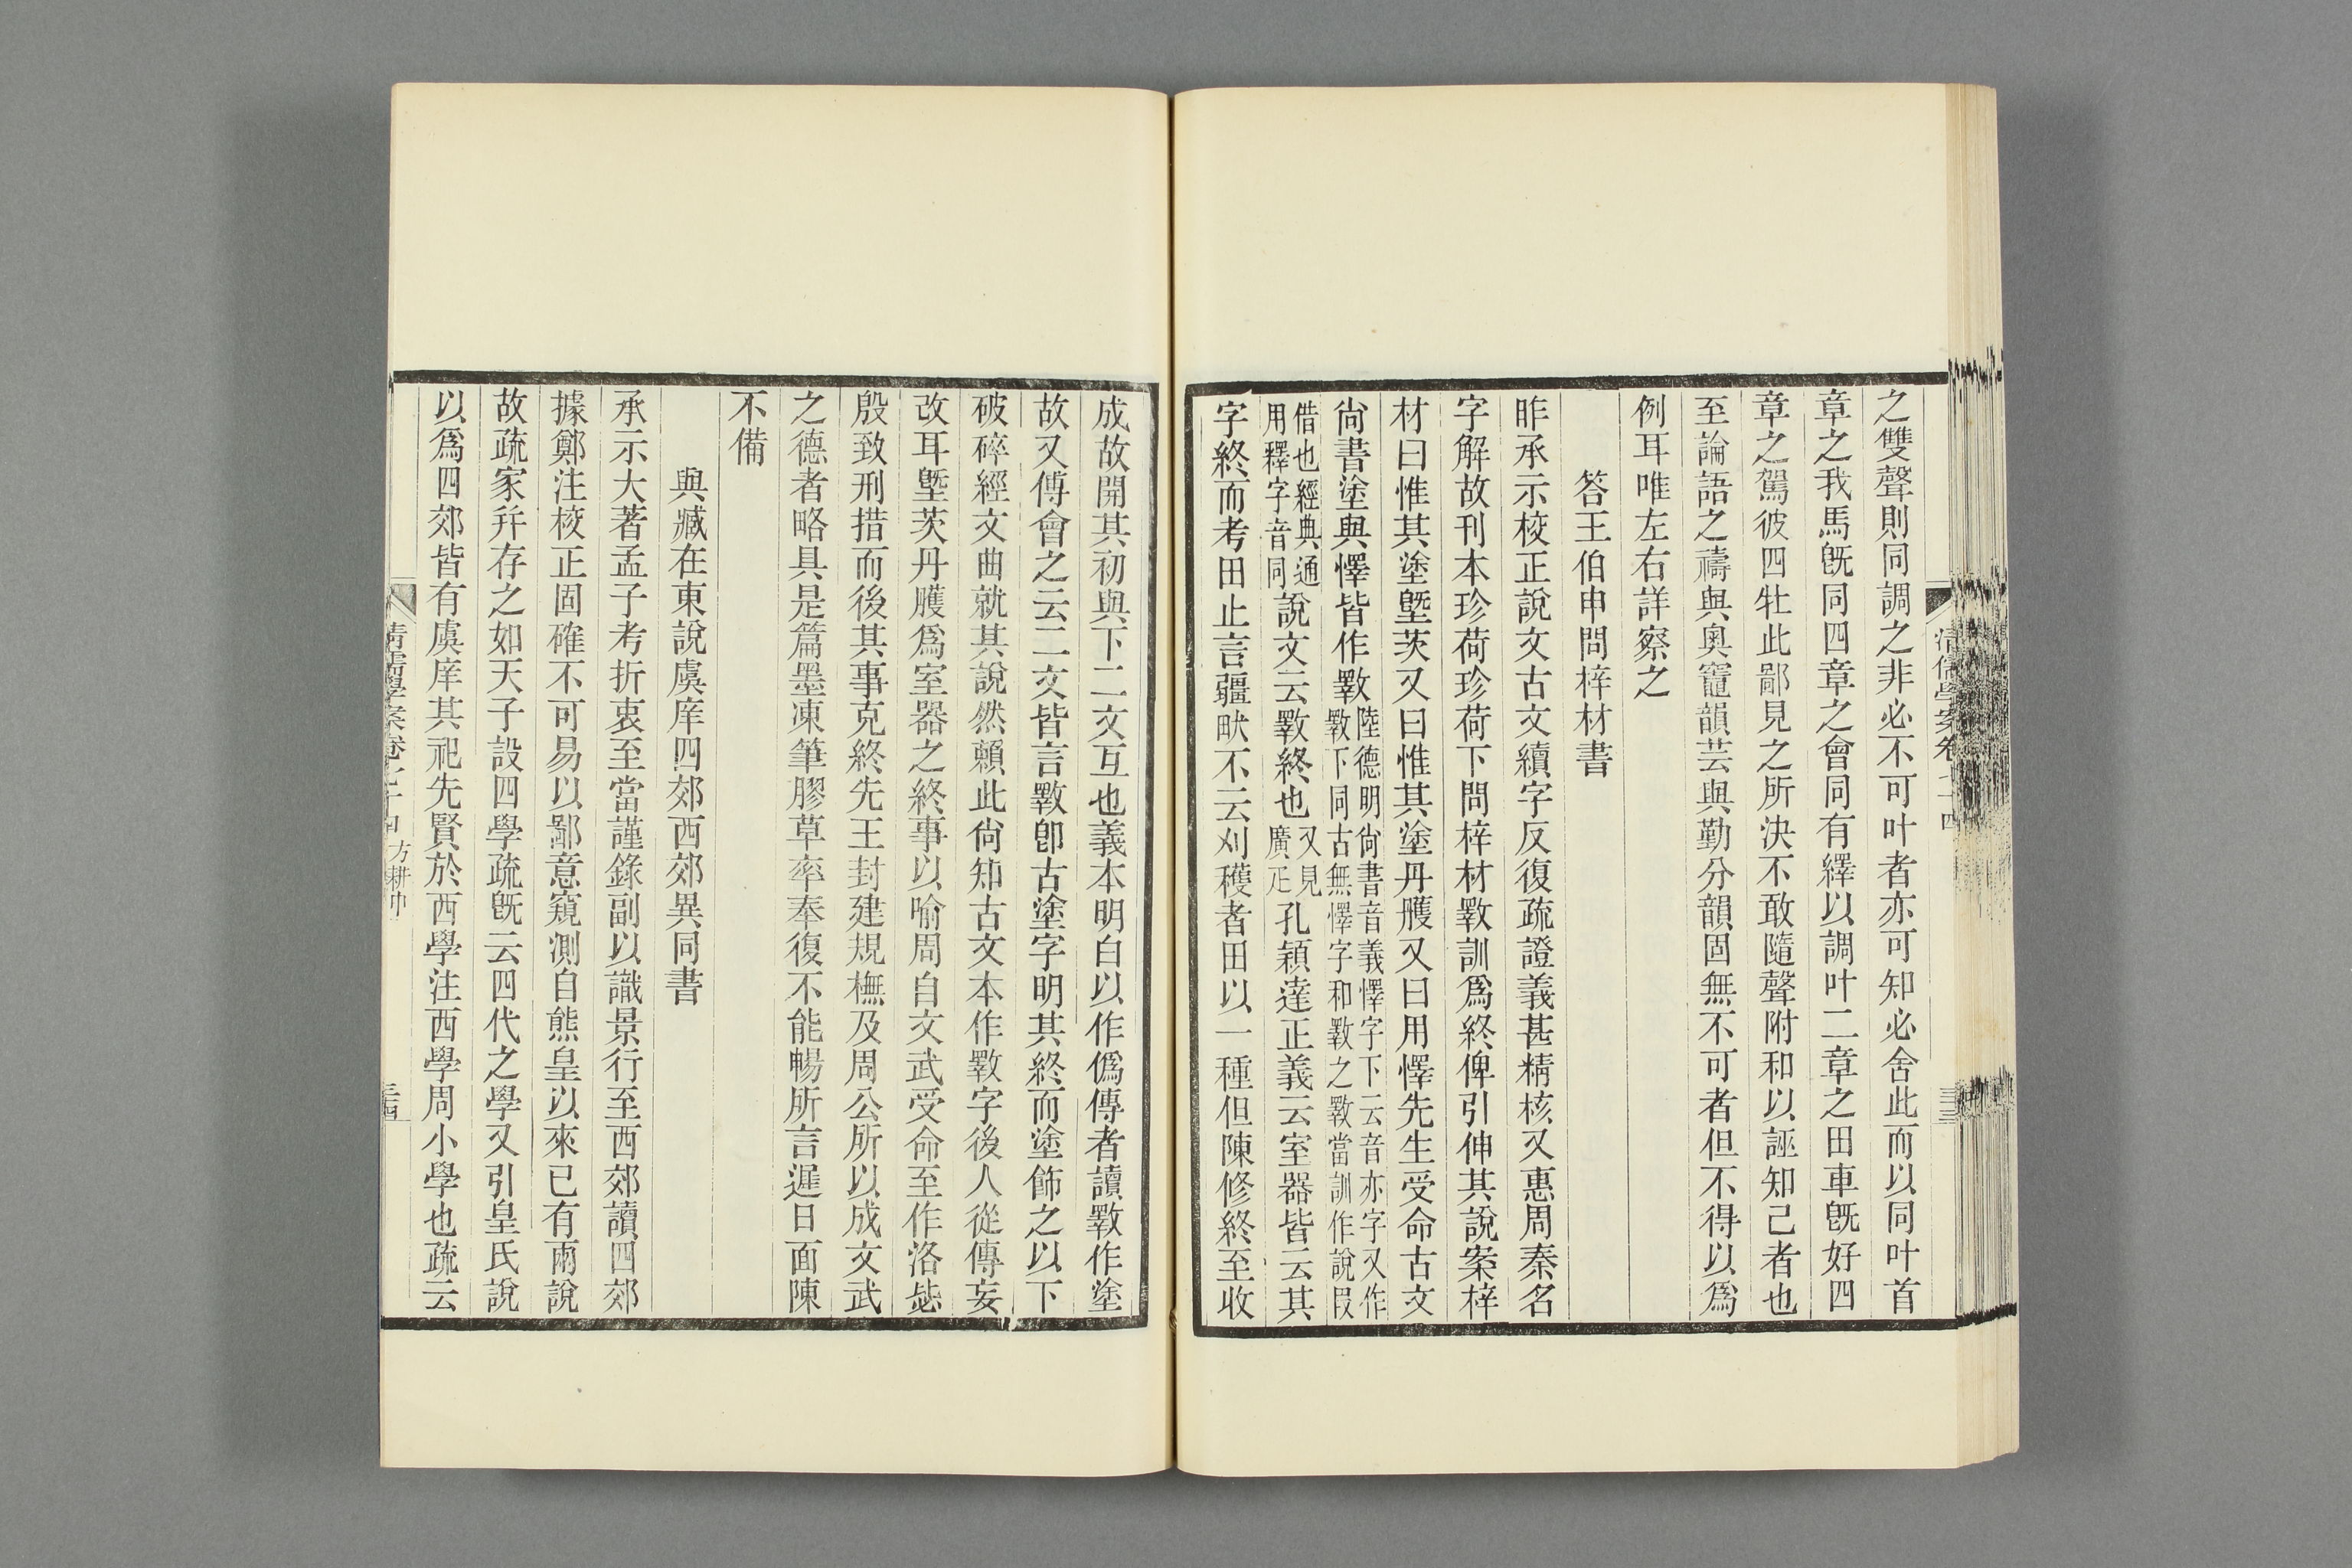 之雙聲則同調之非必不可叶者亦可知必舍此而以同叶首
章之我馬旣同四章之會同有繹以調叶二章之田車旣好四
章之駕彼四牡此鄙見之所決不敢隨聲附和以誣知己者也
至論語之禱與奧竈韻芸與勤分韻固無不可者但不得以爲
例耳唯左右詳察之
答王伯申問梓材書
昨承示校正說文古文續字反復疏證義甚精核又惠周秦名
字解故刊本珍荷珍荷下問梓材斁訓爲終俾引伸其說案梓
材曰惟其塗塈茨又曰惟其塗丹雘又曰用懌先生受命古文
尙書塗與懌皆作斁陸德明尙書音義懌字下云音亦字又作斁下同古無懌字和斁之斁當訓作說叚
借也經典通用釋字音同說文云斁終也又見廣疋孔穎達正義云室器皆云其
字終而考田止言疆畎不云刈穫者田以一種但陳修終至收
成故開其初與下二文互也義本明白以作僞傳者讀斁作塗
故又傅會之云二文皆言斁卽古塗字明其終而塗飾之以下
破碎經文曲就其說然賴此尙知古文本作斁字後人從傳妄
改耳塈茨丹雘爲室器之終事以喻周自文武受命至作洛毖
殷致刑措而後其事克終先王封建規橅及周公所以成文武
之德者略具是篇墨凍筆膠草率奉復不能暢所言遲日面陳
不備
與臧在東說虞庠四郊西郊異同書
承示大著孟子考折衷至當謹錄副以識景行至西郊讀四郊
據鄭注校正固確不可易以鄙意窺測自熊皇以來已有兩說
故疏家幷存之如天子設四學疏旣云四代之學又引皇氏說
以爲四郊皆有虞庠其祀先賢於西學注西學周小學也疏云